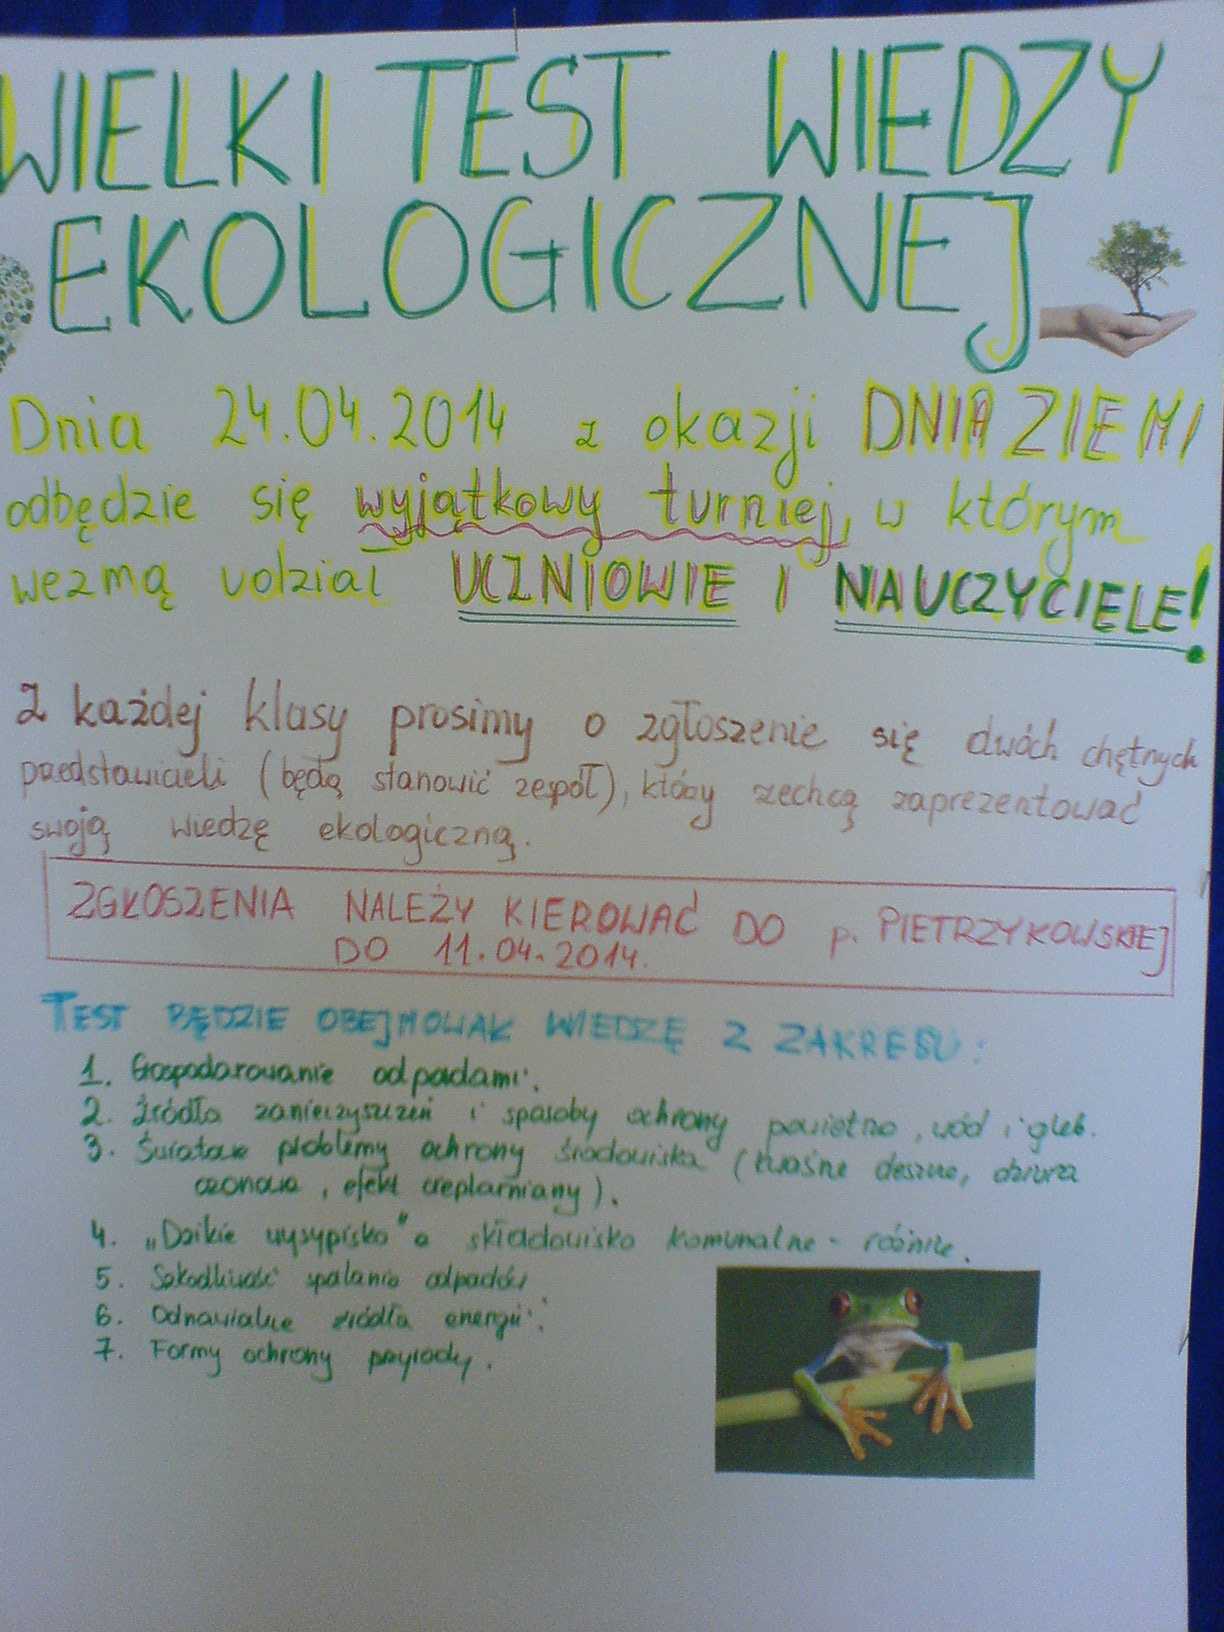 WIELKI TEST WIEDZY
EKOLOGICZNEJ
Dnia 24.04.2014 z okazji DNIA ZIEMI
odbędzie się wyjątkowy turniej, w którym
wezmą udział UCZNIOWIE I NAUCZYCIELE!
Z każdej klasy prosimy o zgłoszenie się dwóch chętnych
przedstawicieli (będą stanowić zespół), którzy zechcą zaprezentować
swoją wiedzę ekologiczną.
ZGŁOSZENIA NALEŻY KIEROWAĆ DO p. PIETRZYKOWSKIEJ
DO 11.04.2014.
TEST BĘDZIE OBEJMOWAŁ WIEDZĘ Z ZAKRESU:
1. Gospodarowanie odpadami.
2. Źródła zanieczyszczeń i sposoby ochrony powietrza, wód i gleb.
3. Światowe problemy ochrony środowiska (kwaśne deszcze, dziura
ozonowa, efekt cieplarniany).
4. „Dzikie wysypisko" a składowisko komunalne - różnice.
5. Szkodliwość spalania odpadów
6. Odnawialne źródła energii.
7. Formy ochrony przyrody.